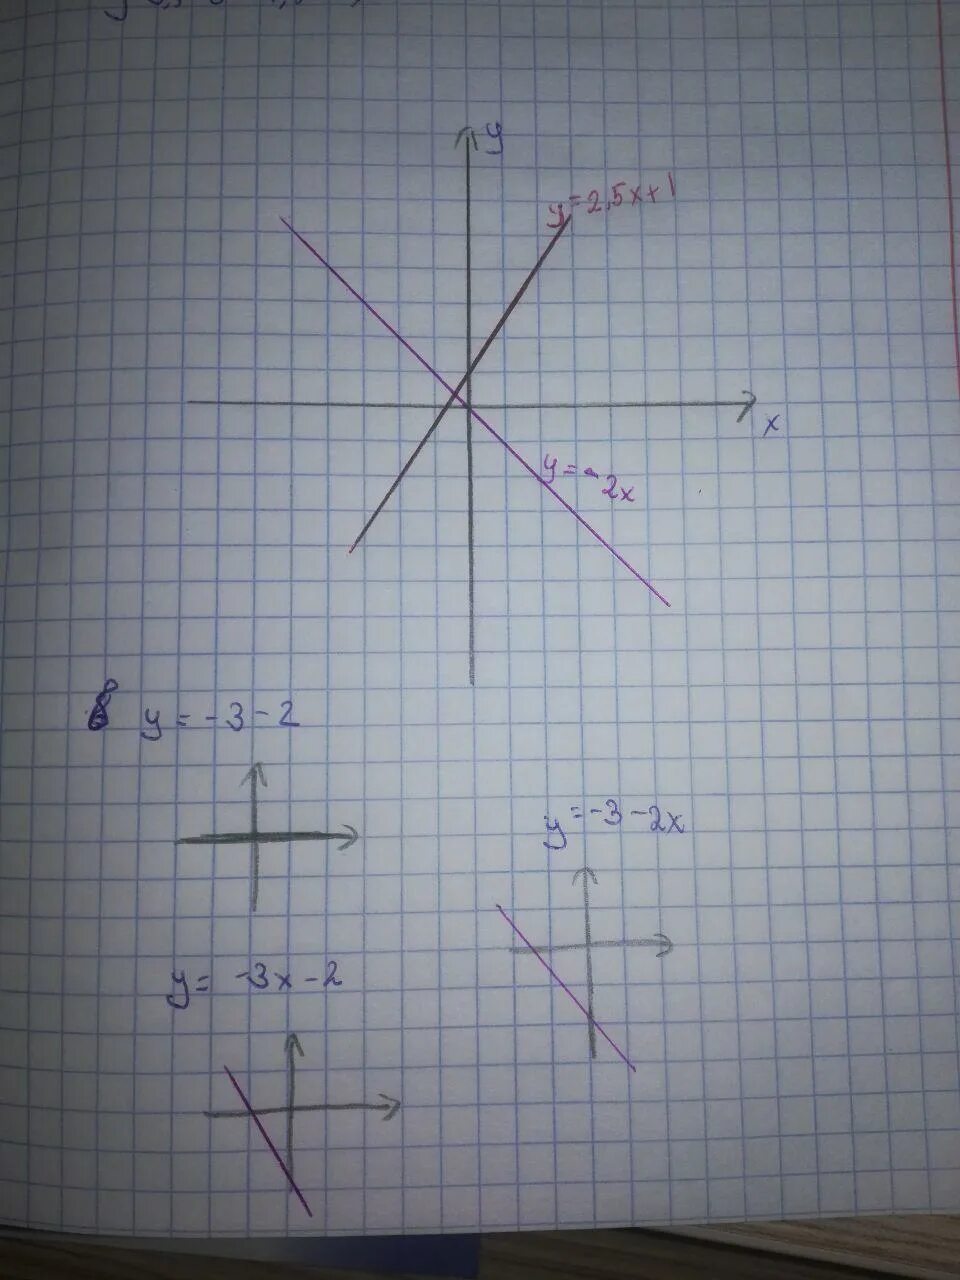 y
y=2,5x+1
x
y=-2x
8 y=-3-2
y=-3-2x
y= -3x-2